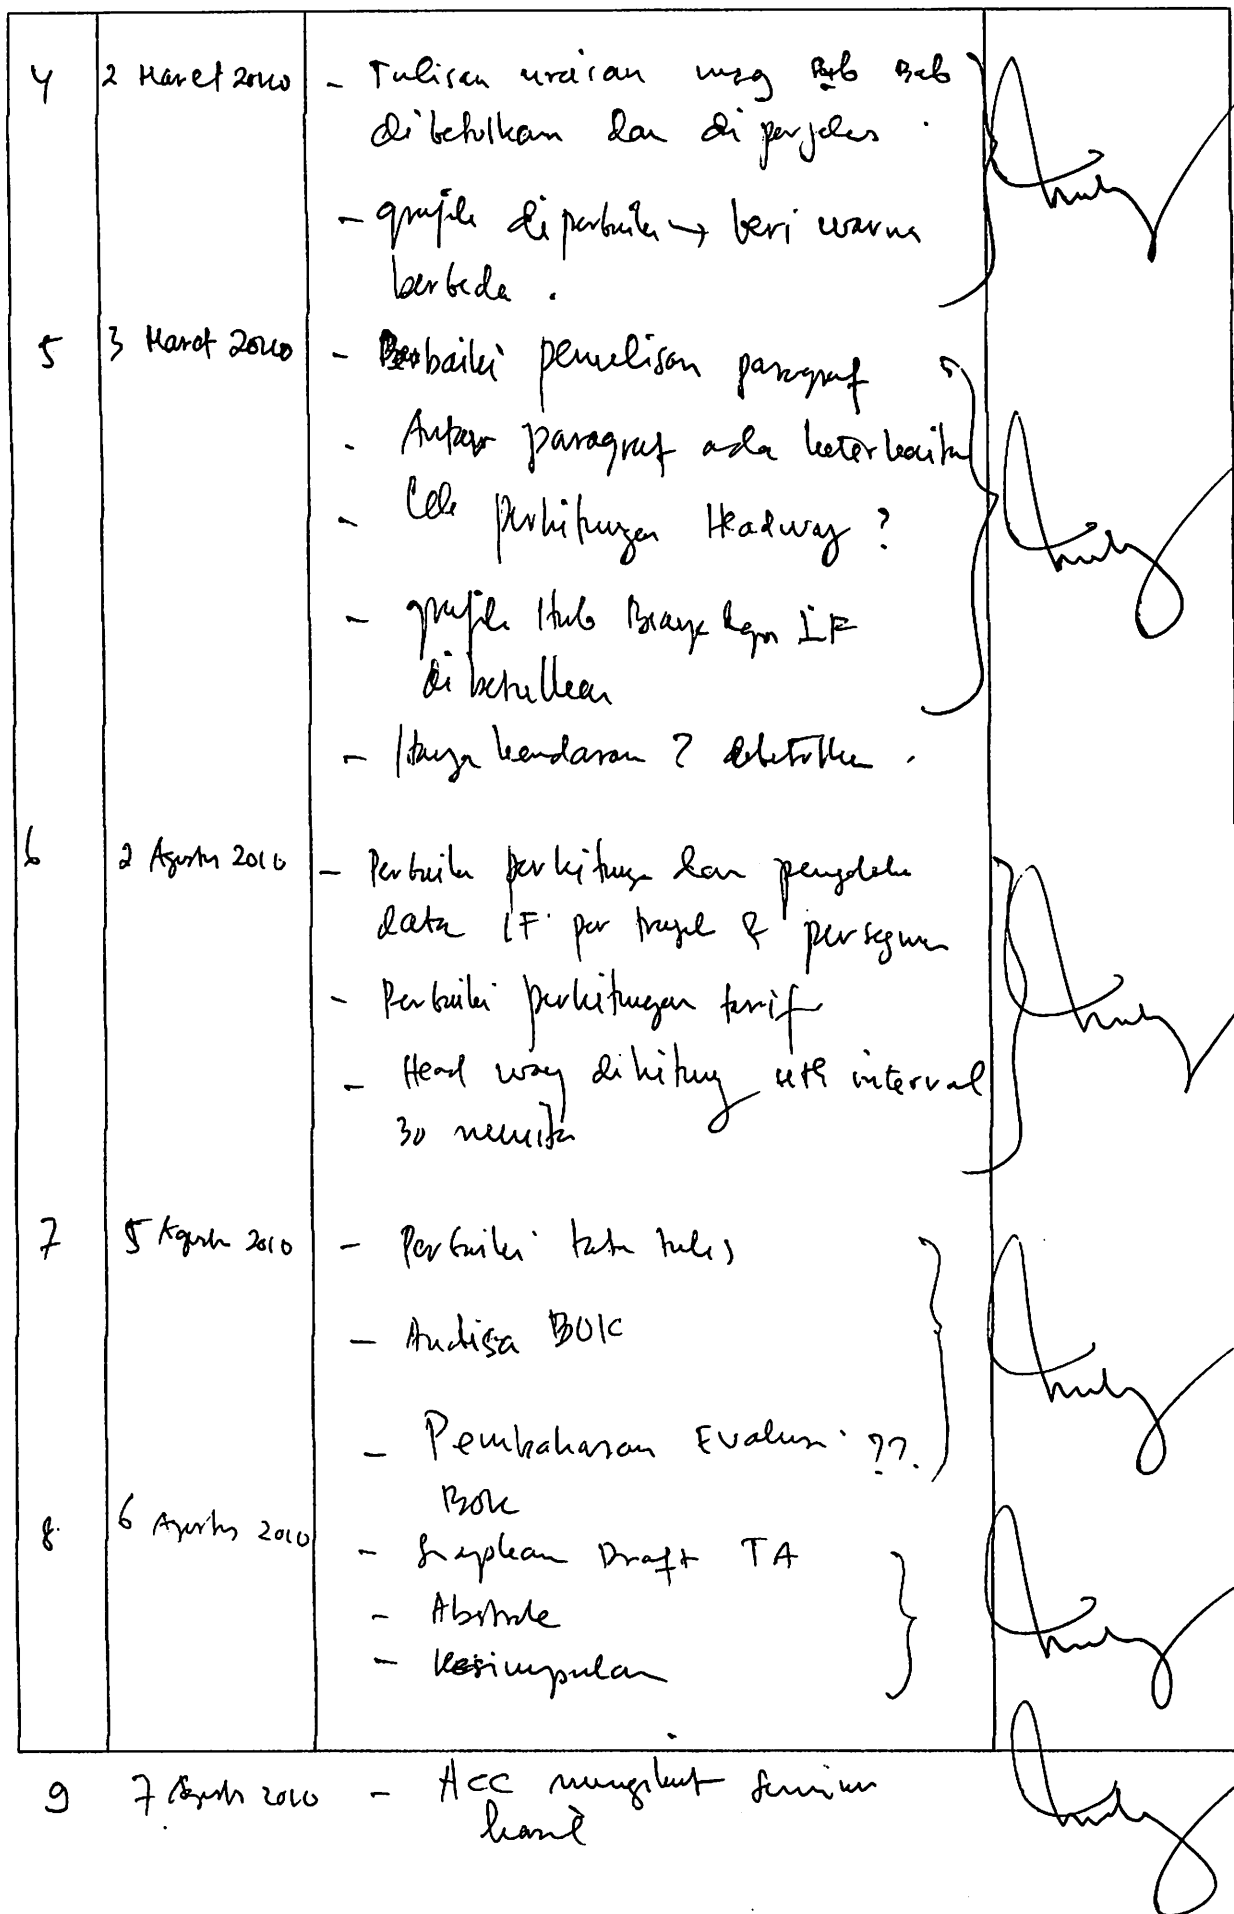 4 2 Maret 2010 - Tulisan uraian msg Bab Bab
dibetulkan dan diperjelas.
- grafik diperbaiki → beri warna
berbeda.
5 3 Maret 2010 - Perbaiki penulisan paragraf
- Antar paragraf ada keterkaitan
- Cek perhitungan Headway ?
- grafik Hub Biaya dgn LF
dibetulkan
- kendaraan ? dibetulkan.
6 2 Agustus 2010 - Perbaiki perhitungan dan pengolahan
data LF per trayek & persegmen
- Perbaiki perhitungan tarif
- Head way dihitung utk interval
30 menitan
7 5 Agustus 2010 - Perbaiki tata tulis
- Analisa BOK
- Pembahasan Evaluasi ??.
BOK
8. 6 Agustus 2010 - Siapkan Draft TA
- Abstrak
- Kesimpulan
9 7 Agustus 2010 - ACC mengikuti seminar
hasil